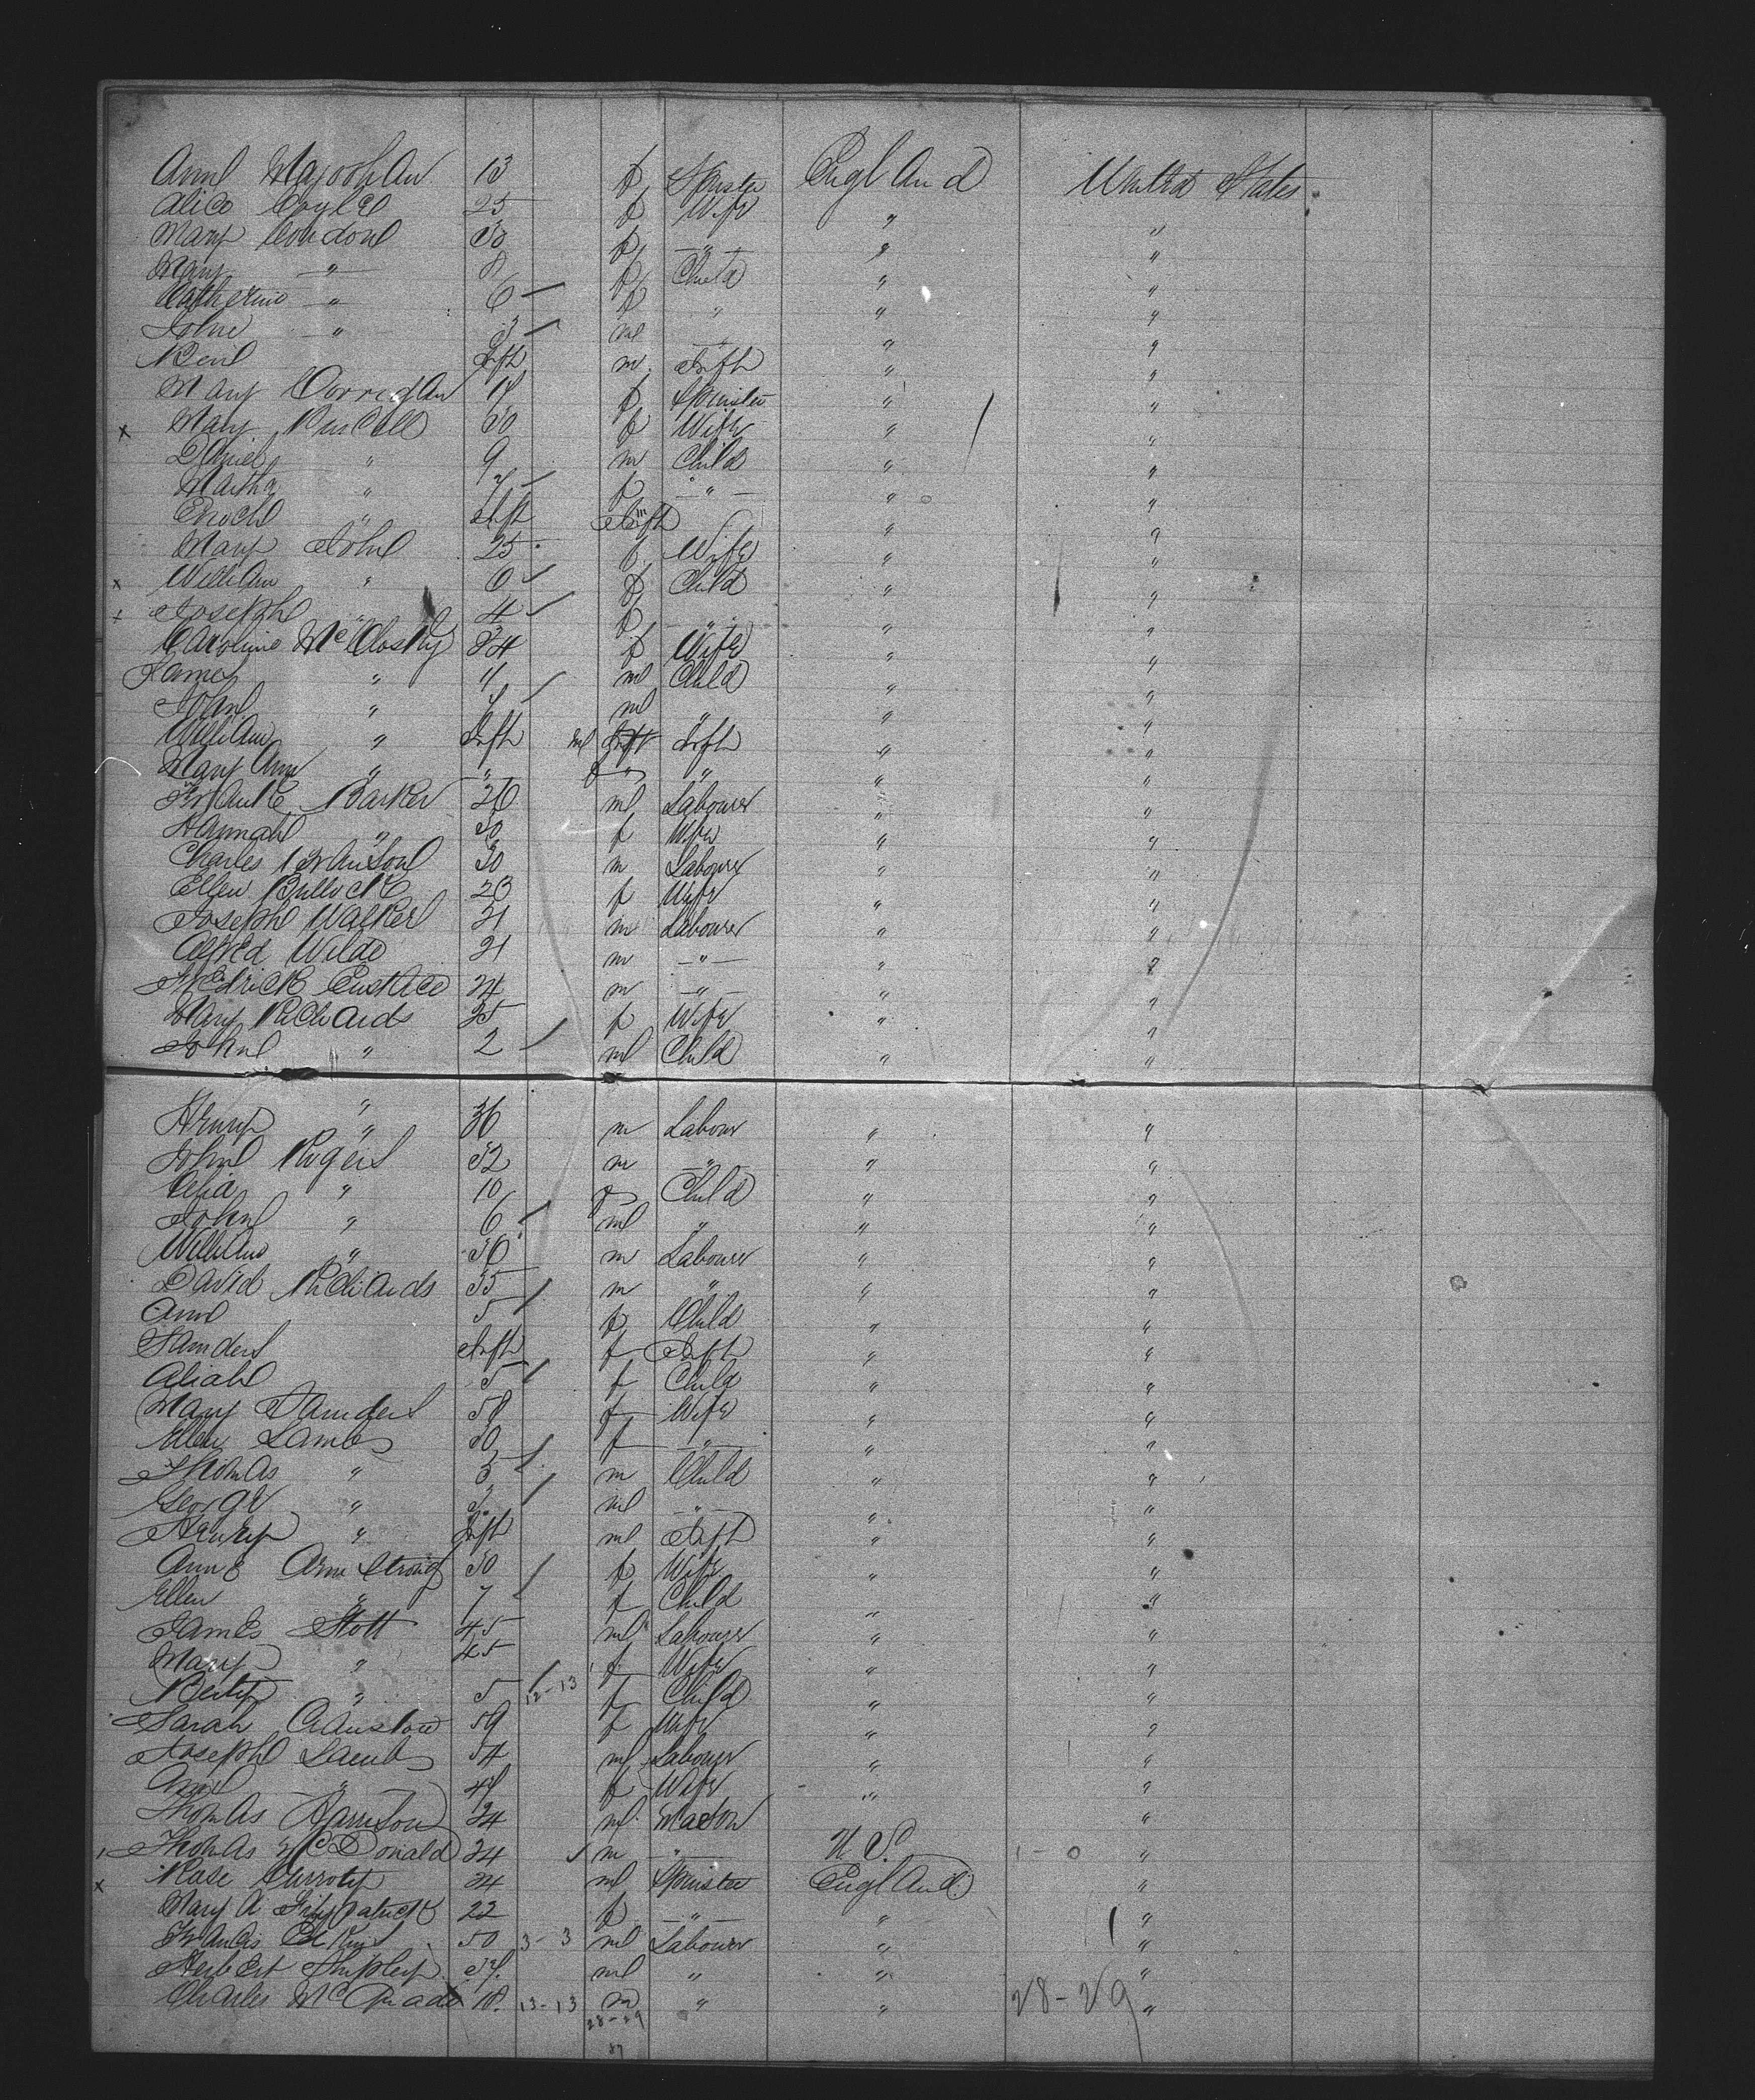 Ann 13 f Spinster England United States
Alice Coyle 25 f Wife " "
Mary Condon 30 f " " "
Mary " 8 f Child " "
Catherine " 6 f " " "
John " 3 m " " "
Ben Inft m Inft " "
Mary Corrigan f Spinster " "
x Mary Purcell 30 f Wife " "
Daniel " 9 m Child " "
Martha " 7 f " " "
Enoch " Inft m Inft " "
Mary John 25 f Wife " "
x William " 6 f Child " "
x Joseph " 4 f " " "
Caroline McClosky 34 f Wife " "
James " 11 m Child " "
John " m " " "
William " Inft m Inft Inft " "
Mary Ann " " f " " " "
Frank Barker 26 m Labourer " "
Hannah " 30 f Wife " "
Charles 30 m Labourer " "
Ellen Bullock 23 f Wife " "
Joseph Walker 21 m Labourer " "
Alfred Wilde 21 m " " "
Fredrick Eustace 24 m " " "
Mary Richards 35 f Wife " "
John " 2 m Child " "
Henry " 36 m Labour " "
John Rogers 32 m " " "
Celia " 10 f Child " "
John " 6 m " " "
William " 30 m Labourer " "
David Richards 35 m " " "
Ann 5 f Child " "
Sanders Inft f Inft " "
5 f Child " "
Mary Sanders f Wife " "
Ellen Lamb 30 f " " "
Thomas " 5 m Child " "
George " 3 m " " "
Henry " Inft m Inft " "
Anne Armstrong 30 f Wife " "
Ellen " 7 f Child " "
James Stott 45 m Labourer " "
Mary " 45 f Wife " "
Betty " 5 12-13 f Child " "
Sarah 59 f Wife " "
Joseph Lamb 54 m Labourer " "
Ann " f Wife " "
Thomas Harrison 24 m Mason " "
Thomas McDonald 24 m " U S. 1-0 "
x Rose 24 m Spinster England "
Mary A Fitzpatrick 22 f " " "
Francis 50 3-3 m Labourer " "
Herbert Shipley m " " "
Charles 18 13-13 m " " 28-29 "
28-29
87